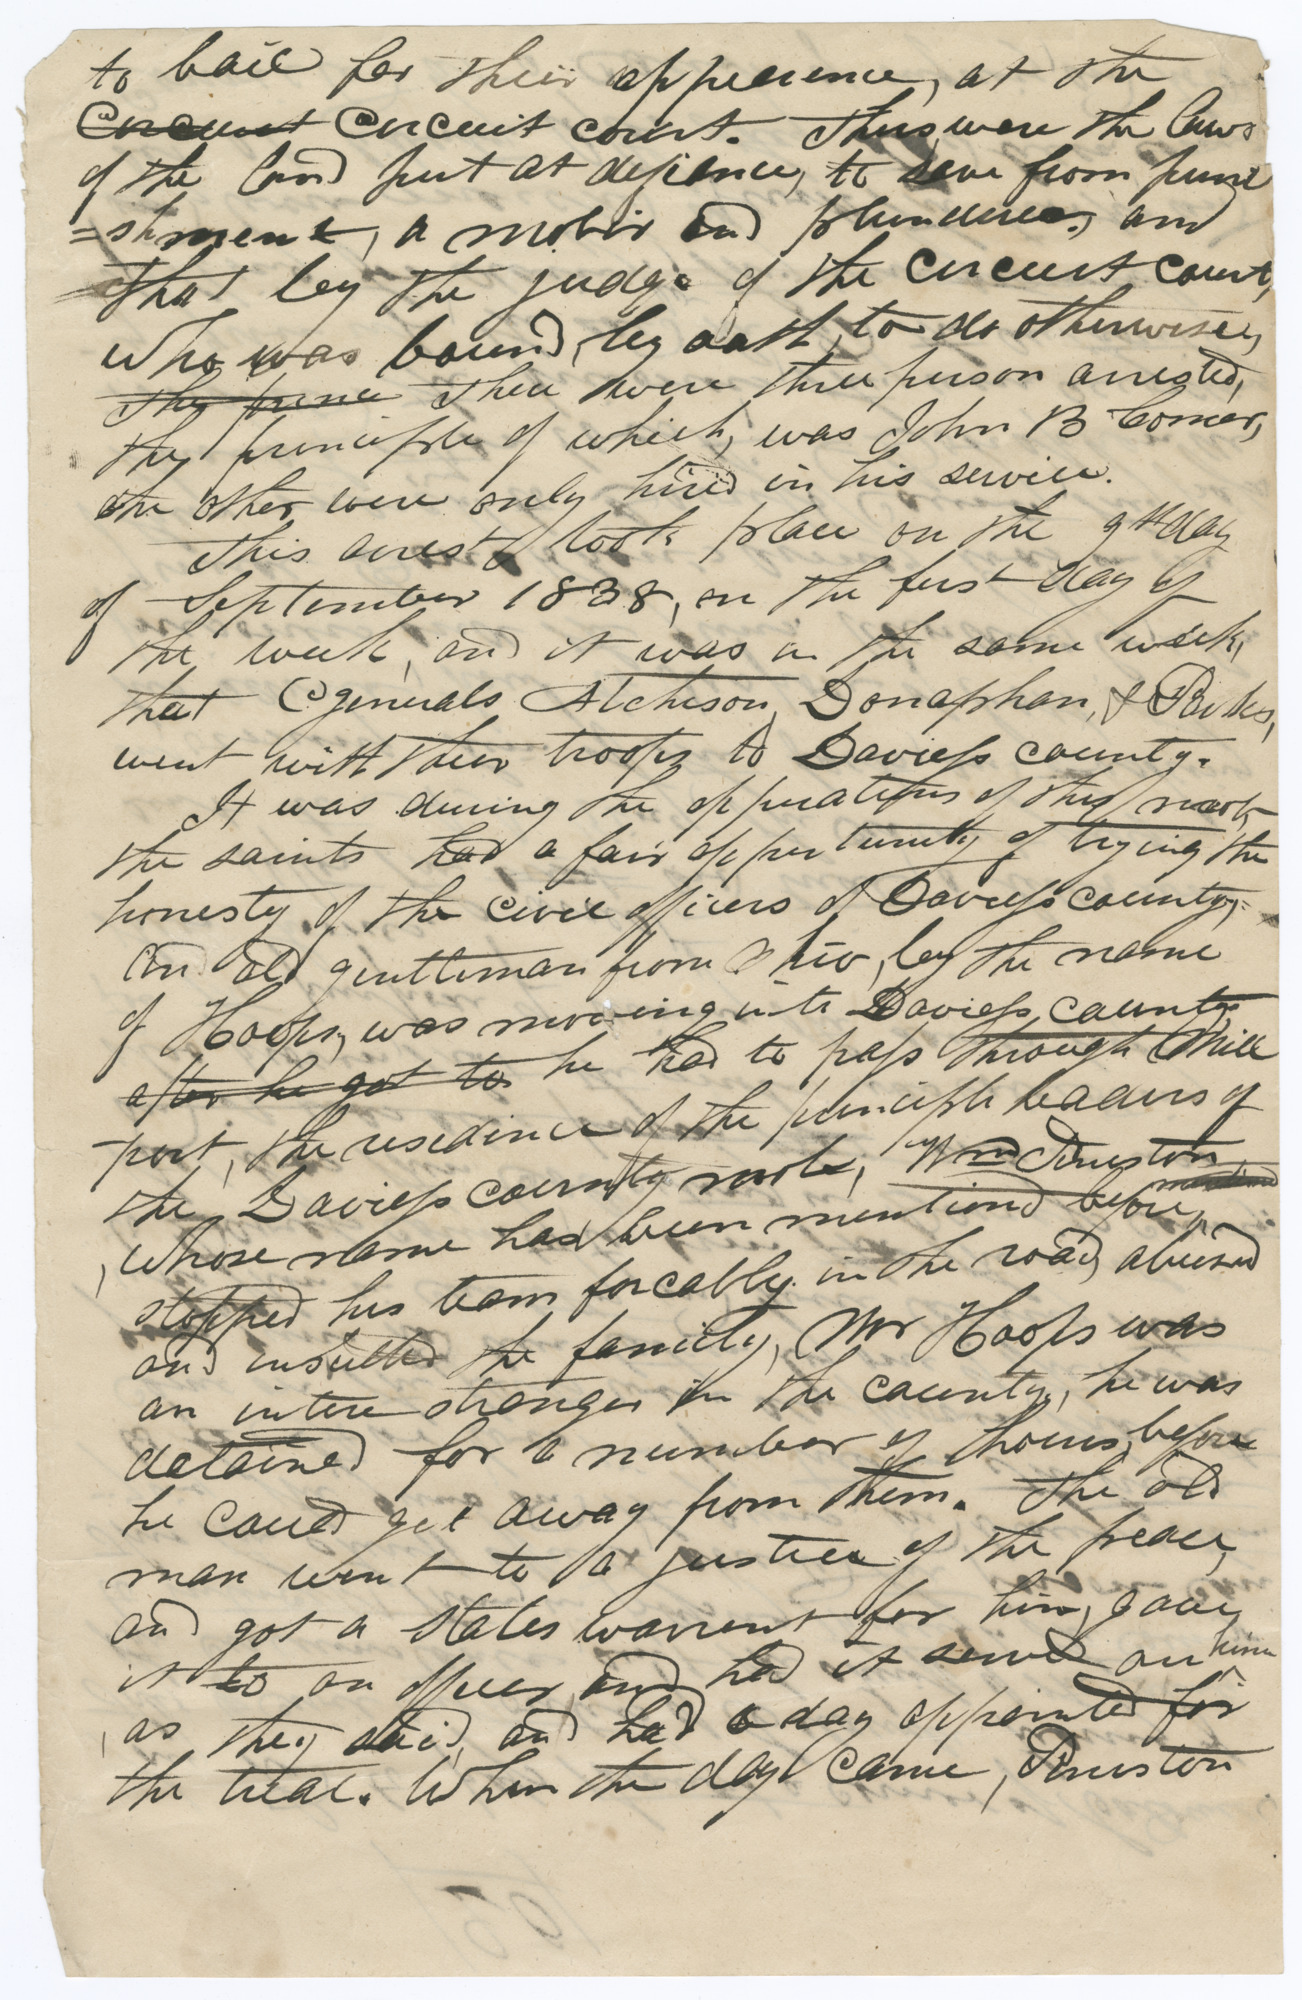 to bail for their appearence, at the
Circuit Circuit court. Thus were the laws
of the land put at defience, to save from puni
=shment, a mobir and plunderer, and
that by the judge of the circuit court,
who was bound, by oath, to do otherwise,
The princi There were three person arrested,
the principle of which, was John B Comer,
the other were only hired in his service.
This arrest took place on the 9th day
of September 1838, on the first day of
the week, and it was in the same week,
that Generals Atcheson, Donaphan, & Parks,
went with their troops to Daviess county.
It was during the opperations of this mob,
the saints had a fair oppertunity of trying the
honesty of the civil officers of Daviess county,
An old gentleman from Ohio, by the name
of Hoops, was moving into Daviess county
after he got to he had to pass through Mill
port, the residence of the principle leaders of
the Daviess county mob, Wm Peniston
whose name has been mentiond before,
stopped his team forcably in the road, abused
and insulted the family, Mr Hoops was
an intire stranger in the county, he was
detained for a number of hours, before
he could get away from them. The old
man went to a justice of the peace,
and got a states warrent for him, gave
it to an officer, and had it served on him
as they said, and had a day appointed for
the trial. When the day came, Peniston